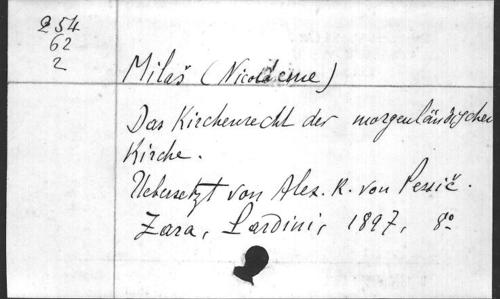 254
62
2
Milaš (Nicodème)
Das Kirchenrecht der morgenländischen
Kirche.
Uebersetzt von Alex. R. von Pessič.
Zara, Lardini, 1897, 8º